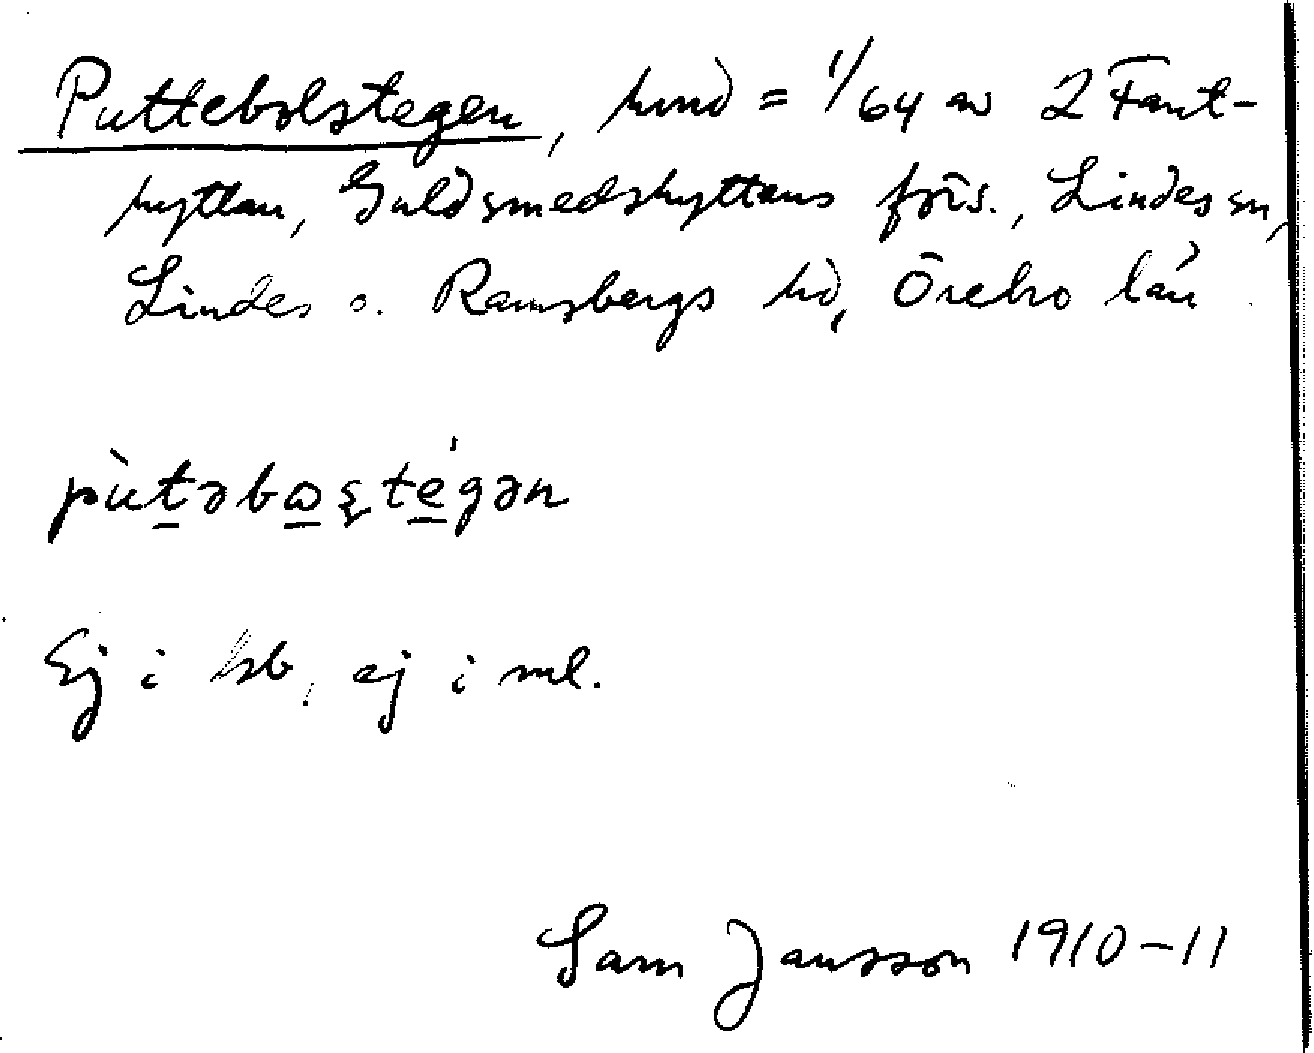 Puttebolstegen, hmd = 1/64 av 2 Fant-
hyttan, Guldsmedshyttans förs., Lindes sn,
Lindes o. Ramsbergs hd, Örebro län
pùt̲əbω̲ʂté̲gən
Ej i sb, ej i ml.
Sam Jansson 1910-11